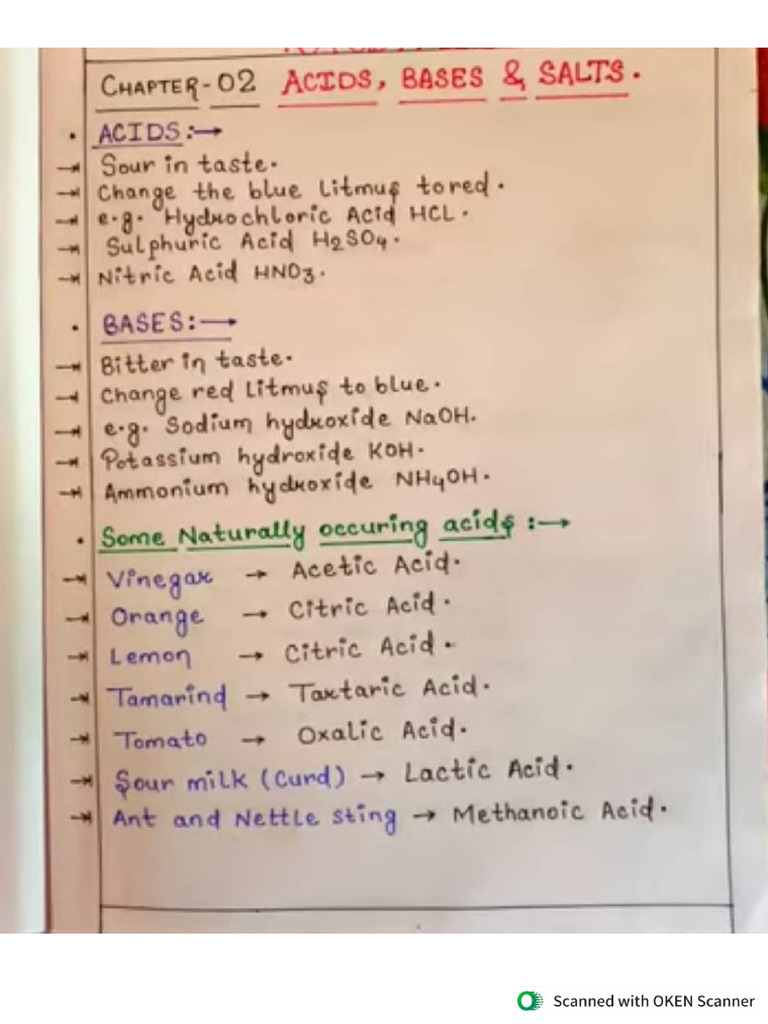 CHAPTER-02 ACIDS, BASES & SALTS.
• ACIDS:→
→ Sour in taste.
→ Change the blue litmus to red.
→ e.g. Hydrochloric Acid HCL.
→ Sulphuric Acid H2SO4.
→ Nitric Acid HNO3.
• BASES:→
→ Bitter in taste.
→ Change red litmus to blue.
→ e.g. Sodium hydroxide NaOH.
→ Potassium hydroxide KOH.
→ Ammonium hydroxide NH4OH.
• Some Naturally occuring acids :→
→ Vinegar → Acetic Acid.
→ Orange → Citric Acid.
→ Lemon → Citric Acid.
→ Tamarind → Tartaric Acid.
→ Tomato → Oxalic Acid.
→ Sour milk (Curd) → Lactic Acid.
→ Ant and Nettle sting → Methanoic Acid.
Scanned with OKEN Scanner